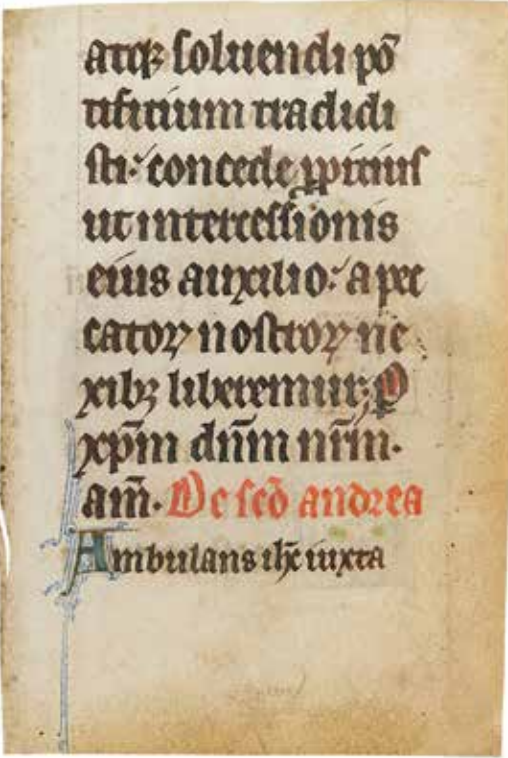 atqꝫ soluendi pō
tificium tradidi
sti: concede ꝓpicius
ut intercessionis
eius auxilio: a pec
catoꝝ nostroꝝ ne
xibꝫ liberemur: ꝑ
xp̄m dn̄m nr̄m.
am̄. De scō andrea
Ambulans ih̄c iuxta